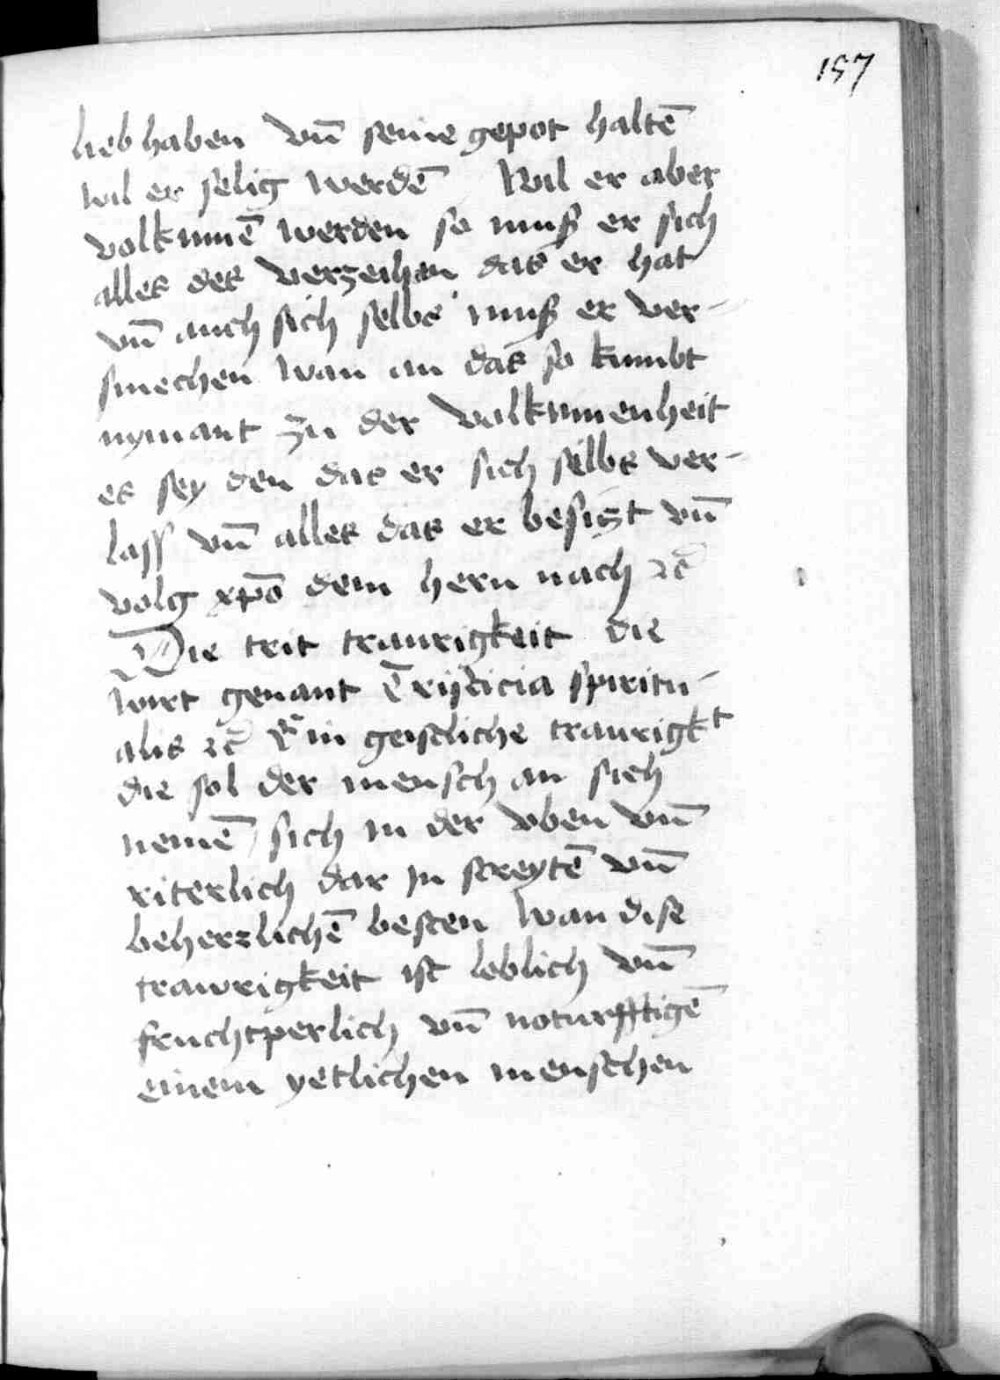 157
lieb haben vn̄ seine gepot haltē
wil er selig werdē Wil er aber
volkumē werden so muß er sich
alles des verzeihen das er hat
vn̄ auch sich selbs muß er ver-
smechen wan an das so kumbt
nymant zu der volkumenheit
es sey den das er sich selbs ver-
lass vn̄ alles das er besiczt vn̄
volg xp̄o dem hern nach ꝛc̄
Die trit traurigkeit die
wirt genant Tristicia spiritu-
alis ꝛc̄ Ein geistliche traurigkt
die sol der mensch an sich
nemē sich in der vben vn̄
riterlich dar jn streytē vn̄
beherzlichē besten Wan dise
trawrigkeit ist loblich vn̄
fruchtperlich vn̄ noturfftigē
einem yetlichen menschen